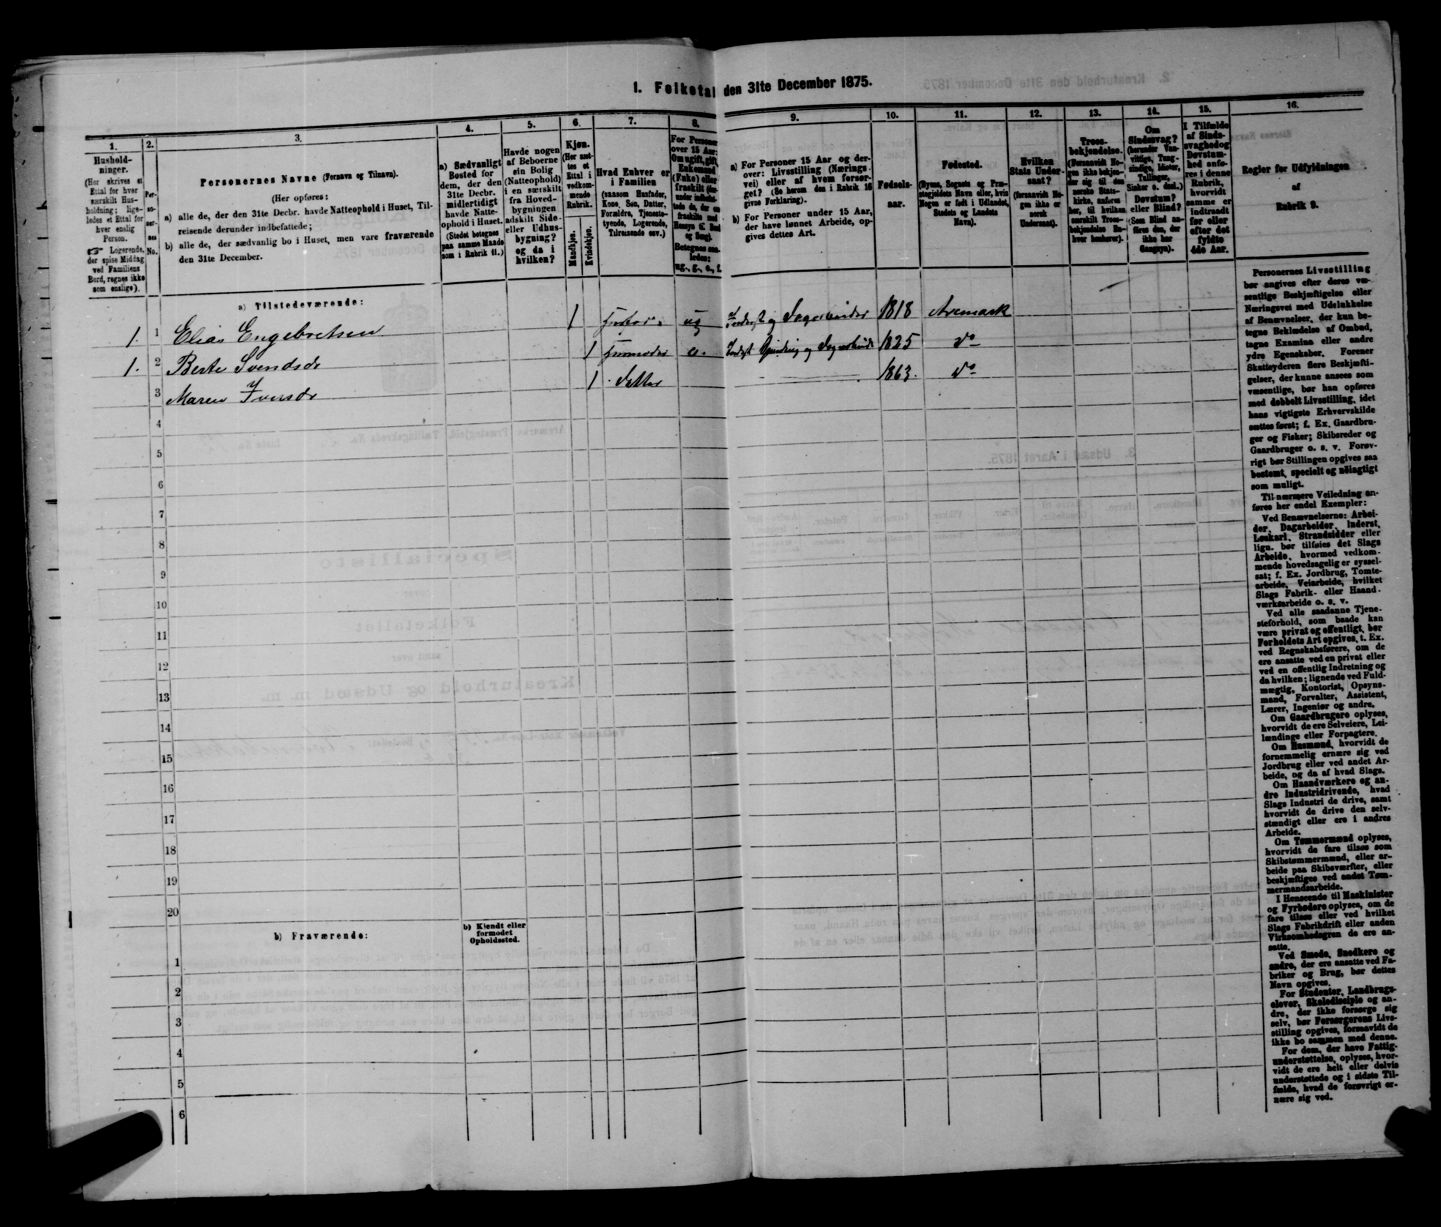 1. Folketal den 31te December 1875.
1.
Hushold-
ninger.
(Her skrives et
Ettal for hver
særskilt Hus-
holdning; lige-
ledes et Ettal for
hver enslig
Person.
Logerende,
der spise Middag
ved Familiens
Bord, regnes ikke
som enslige).
2.
Per-
so-
ner-
nes
No.
3.
Personernes Navne (Fornavn og Tilnavn).
(Her opføres:
a) alle de, der den 31te Decbr. havde Natteophold i Huset, Til-
reisende derunder indbefattede;
b) alle de, der sædvanlig bo i Huset, men vare fraværende
den 31te December.
4.
a) Sædvanligt
Bosted for
dem, der den
31te Decbr.
midlertidigt
havde Natte-
ophold i Huset.
(Stedet betegnes
paa samme Maade
som i Rubrik 11.)
5.
Havde nogen
af Beboerne
sin Bolig
(Natteophold)
i en særskilt
fra Hoved-
bygningen
adskilt Side-
eller Udhus-
bygning?
og da i
hvilken?
6.
Kjøn.
(Her sæt-
tes et
Ettal i
vedkom-
mende
Rubrik.
Mandkjøn.
Kvindekjøn.
7.
Hvad Enhver er
i Familien
(saasom Husfader,
Kone, Søn, Datter,
Forældre, Tjeneste-
tyende, Logerende,
Tilreisende osv.)
8.
For Personer
over 15 Aar:
Om ugift, gift,
Enkemand
(Enke) eller
fraskilt
Betegnes saa-
ledes:
ug., g., e., f.
9.
a) For Personer 15 Aar og der-
over: Livsstilling (Nærings-
vei) eller af hvem forsør-
get? (Se herom den i Rubrik 16
givne Forklaring).
b) For Personer under 15 Aar,
der have lønnet Arbeide, op-
gives dettes Art.
10.
Fødsels-
aar.
11.
Fødested.
(Byens, Sognets og Præ-
stegjeldets Navn eller, hvis
Nogen er født i Udlandet,
Stedets og Landets
Navn).
12.
Hvilken
Stats Under-
saat?
(forsaavidt No-
gen ikke er
norsk
Undersaat).
13.
Troes-
bekjendelse.
(Forsaavidt No-
gen ikke bekjen-
der sig til den
norske Stats-
kirke, anføres
her, til hvilken
særskilt Troes-
bekjendelse No-
hver henhører).
14.
Om
Sindssvag?
(herunder Van-
vittige, Tung-
sindige, Idioter,
Tullinger,
Sinker o. desl.)
Døvstum?
eller Blind?
(Som Blind an-
føres den, der
ikke har
Gangsyn).
15.
I Tilfælde
af Sinds-
svaghed og
Døvstum-
hed anfø-
res i denne
Rubrik,
hvorvidt
samme er
indtraadt
før eller
efter det
fyldte
4de Aar.
16.
Regler for Udfyldningen
af
Rubrik 9.
a) Tilstedeværende:
1. 1 Elias Engebretsen 1 ug 1818 Aremark
1. 2 Berte Svendsdr 1 e. 1825 do
3 Maren Iversdr 1 1863. do
4
5
6
7
8
9
10
11
12
13
14
15
16
17
18
19
20
b) Fraværende:
b) Kjendt eller
formodet
Opholdssted.
1
2
3
4
5
6
Personernes Livsstilling
bør angives efter deres væ-
sentlige Beskjæftigelse eller
Næringsvei med Udelukkelse
af Benævnelser, der kun be-
tegne Beklædelse af Ombud,
tagne Examina eller andre
ydre Egenskaber. Forener
Skatteyderen flere Beskjæfti-
gelser, der kunne ansees som
væsentlige, bør han opføres
med dobbelt Livsstilling, idet
hans vigtigste Erhvervskilde
sættes først; f. Ex. Gaardbru-
ger og Fisker; Skibsreder og
Gaardbruger o. s. v. Forøv-
rigt bør Stillingen opgives saa
bestemt, specielt og nøiagtigt
som muligt.
Til nærmere Veiledning an-
føres her endel Exempler:
Ved Benævnelserne: Arbei-
der, Dagarbeider, Inderst,
Løskarl, Strandsidder eller
lign. bør tilføies det Slags
Arbeide, hvormed vedkom-
mende hovedsagelig er syssel-
sat; f. Ex. Jordbrug, Tomte-
arbeide, Veiarbeide, hvilket
Slags Fabrik- eller Haand-
værksarbeide o. s. v.
Ved alle saadanne Tjene-
steforhold, som baade kan
være privat og offentligt, bør
Forholdets Art opgives, t. Ex.
ved Regnskabsførere, om de
ere ansatte ved en privat eller
ved en offentlig Indretning og
da hvilken; lignende ved Fuld-
mægtig, Kontorist, Opsyns-
mand, Forvalter, Assistent,
Lærer, Ingeniør og andre.
Om Gaardbrugere oplyses,
hvorvidt de ere Selveiere, Lei-
lændinge eller Forpagtere.
Om Husmænd, hvorvidt de
fornemmelig ernære sig ved
Jordbrug eller ved andet Ar-
beide, og da af hvad Slags.
Om Haandværkere og an-
dre Industridrivende, hvad
Slags Industri de drive, samt
hvorvidt de drive den selv-
stændigt eller ere i andres
Arbeide.
Om Tømmermænd oplyses,
hvorvidt de fare tilsøs som
Skibstømmermænd, eller ar-
beide paa Skibsværfter, eller
beskjæftiges ved andet Tøm-
mermandsarbeide.
I Henseende til Maskinister
og Fyrbødere oplyses, om de
fare tilsøs eller ved hvilket
Slags Fabrikdrift eller anden
Virksomhedsgren de ere an-
satte.
Ved Smede, Snedkere og
andre, der ere ansatte ved Fa-
briker og Brug, bør dettes
Navn opgives.
For Studenter, Landbrugs-
elever, Skoledisciple og an-
dre, der ikke forsørge sig
selv, bør Forsørgerens Livs-
stilling opgives, forsaavidt de
ikke bo sammen med denne.
For dem, der have Fattig-
understøttelse, oplyses, hvor-
vidt de ere helt eller delvis
understøttede og i sidste Til-
fælde, hvad de forøvrigt er-
nære sig ved.